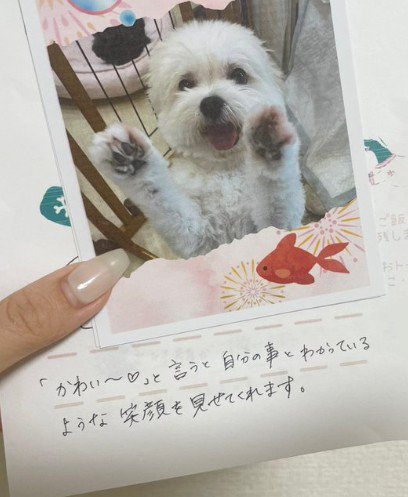 ご飯
残しま
おト
「かわい〜♡」と言うと自分の事とわかっている
ような笑顔を見せてくれます。